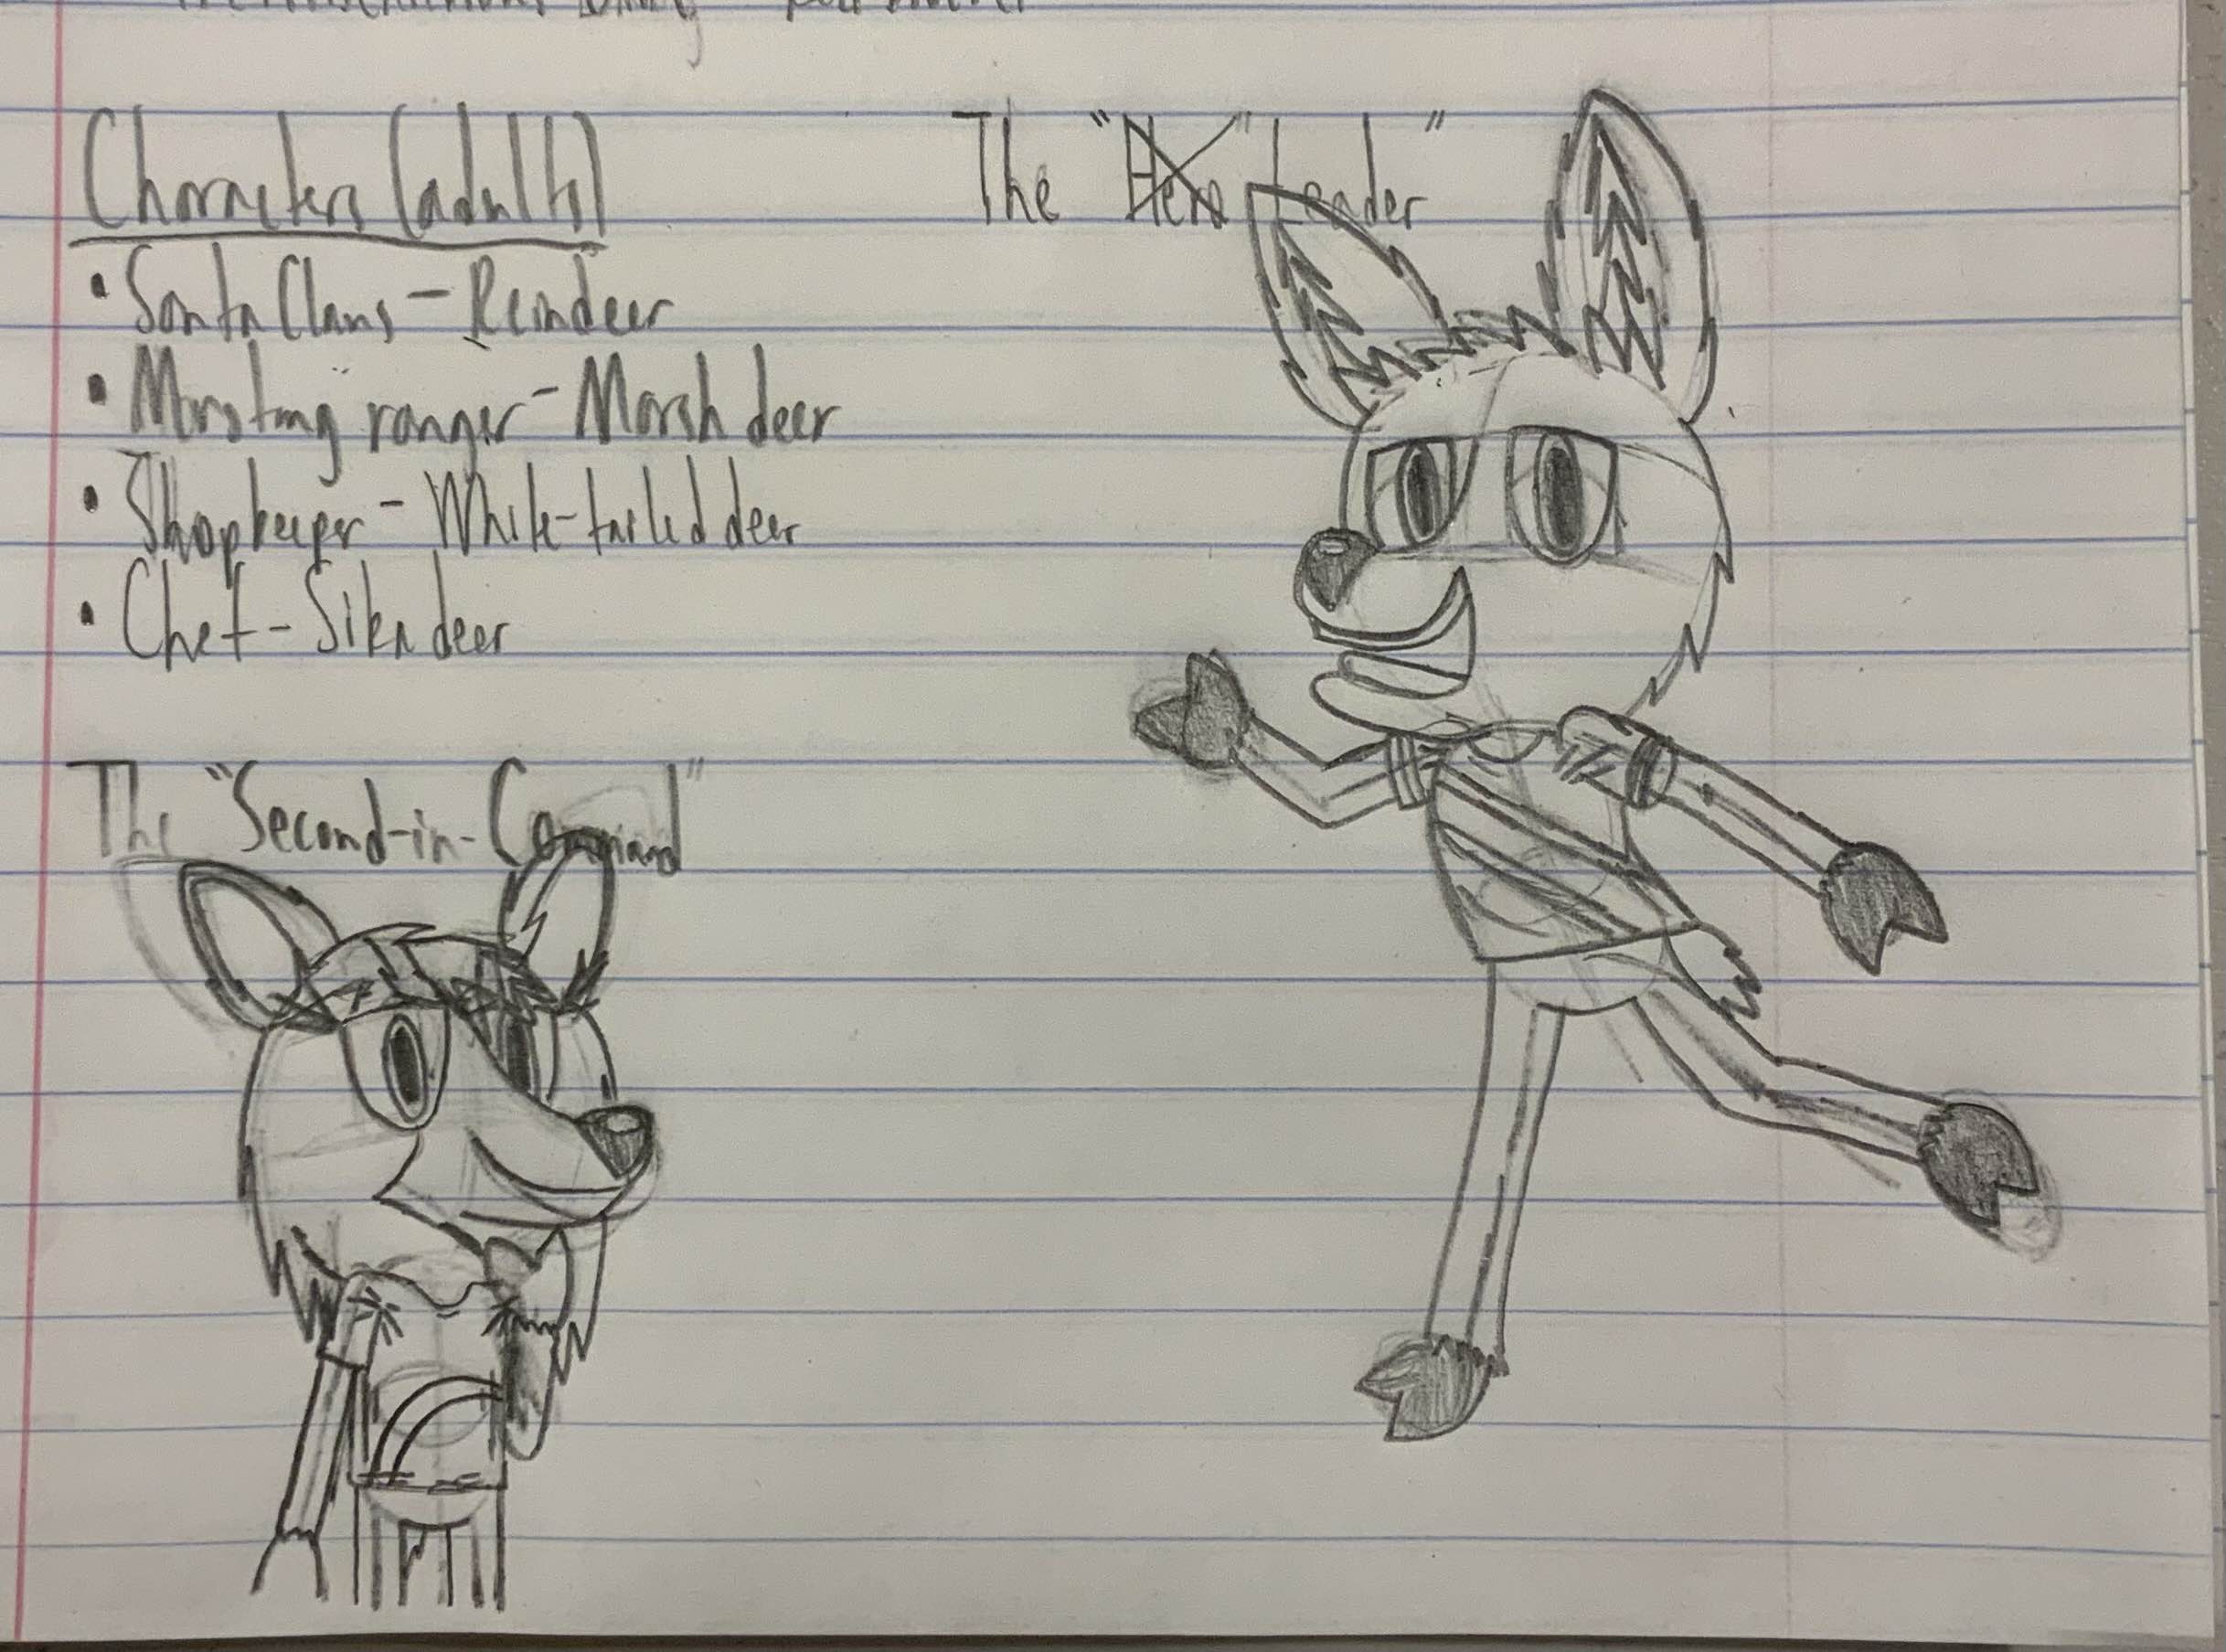 Characters (adults)
• Santa Claus - Reindeer
• ranger - Marsh deer
• Shopkeeper - White-tailed deer
• Chef - Sika deer
The "Hero" Leader"
The "Second-in-Command"